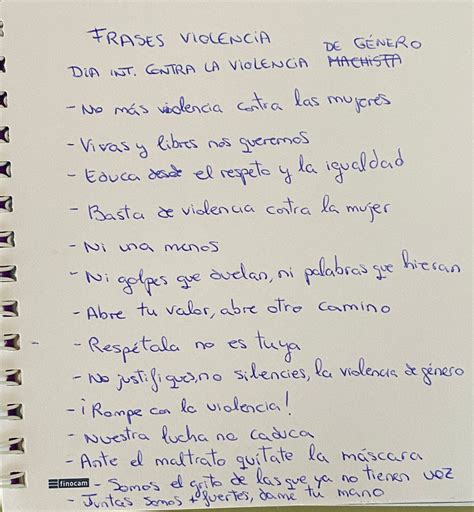 FRASES VIOLENCIA DE GÉNERO
DIA INT. CONTRA LA VIOLENCIA MACHISTA
- No más violencia contra las mujeres
- Vivas y libres nos queremos
- Educa desde el respeto y la igualdad
- Basta de violencia contra la mujer
- Ni una menos
- Ni golpes que duelan, ni palabras que hieran
- Abre tu valor, abre otro camino
- Respétala no es tuya
- No justifiques, no silencies, la violencia de género
- ¡Rompe con la violencia!
- Nuestra lucha no caduca
- Ante el maltrato quitate la máscara
finocam - Somos el grito de las que ya no tienen voz
- Juntas somos + fuertes, dame tu mano